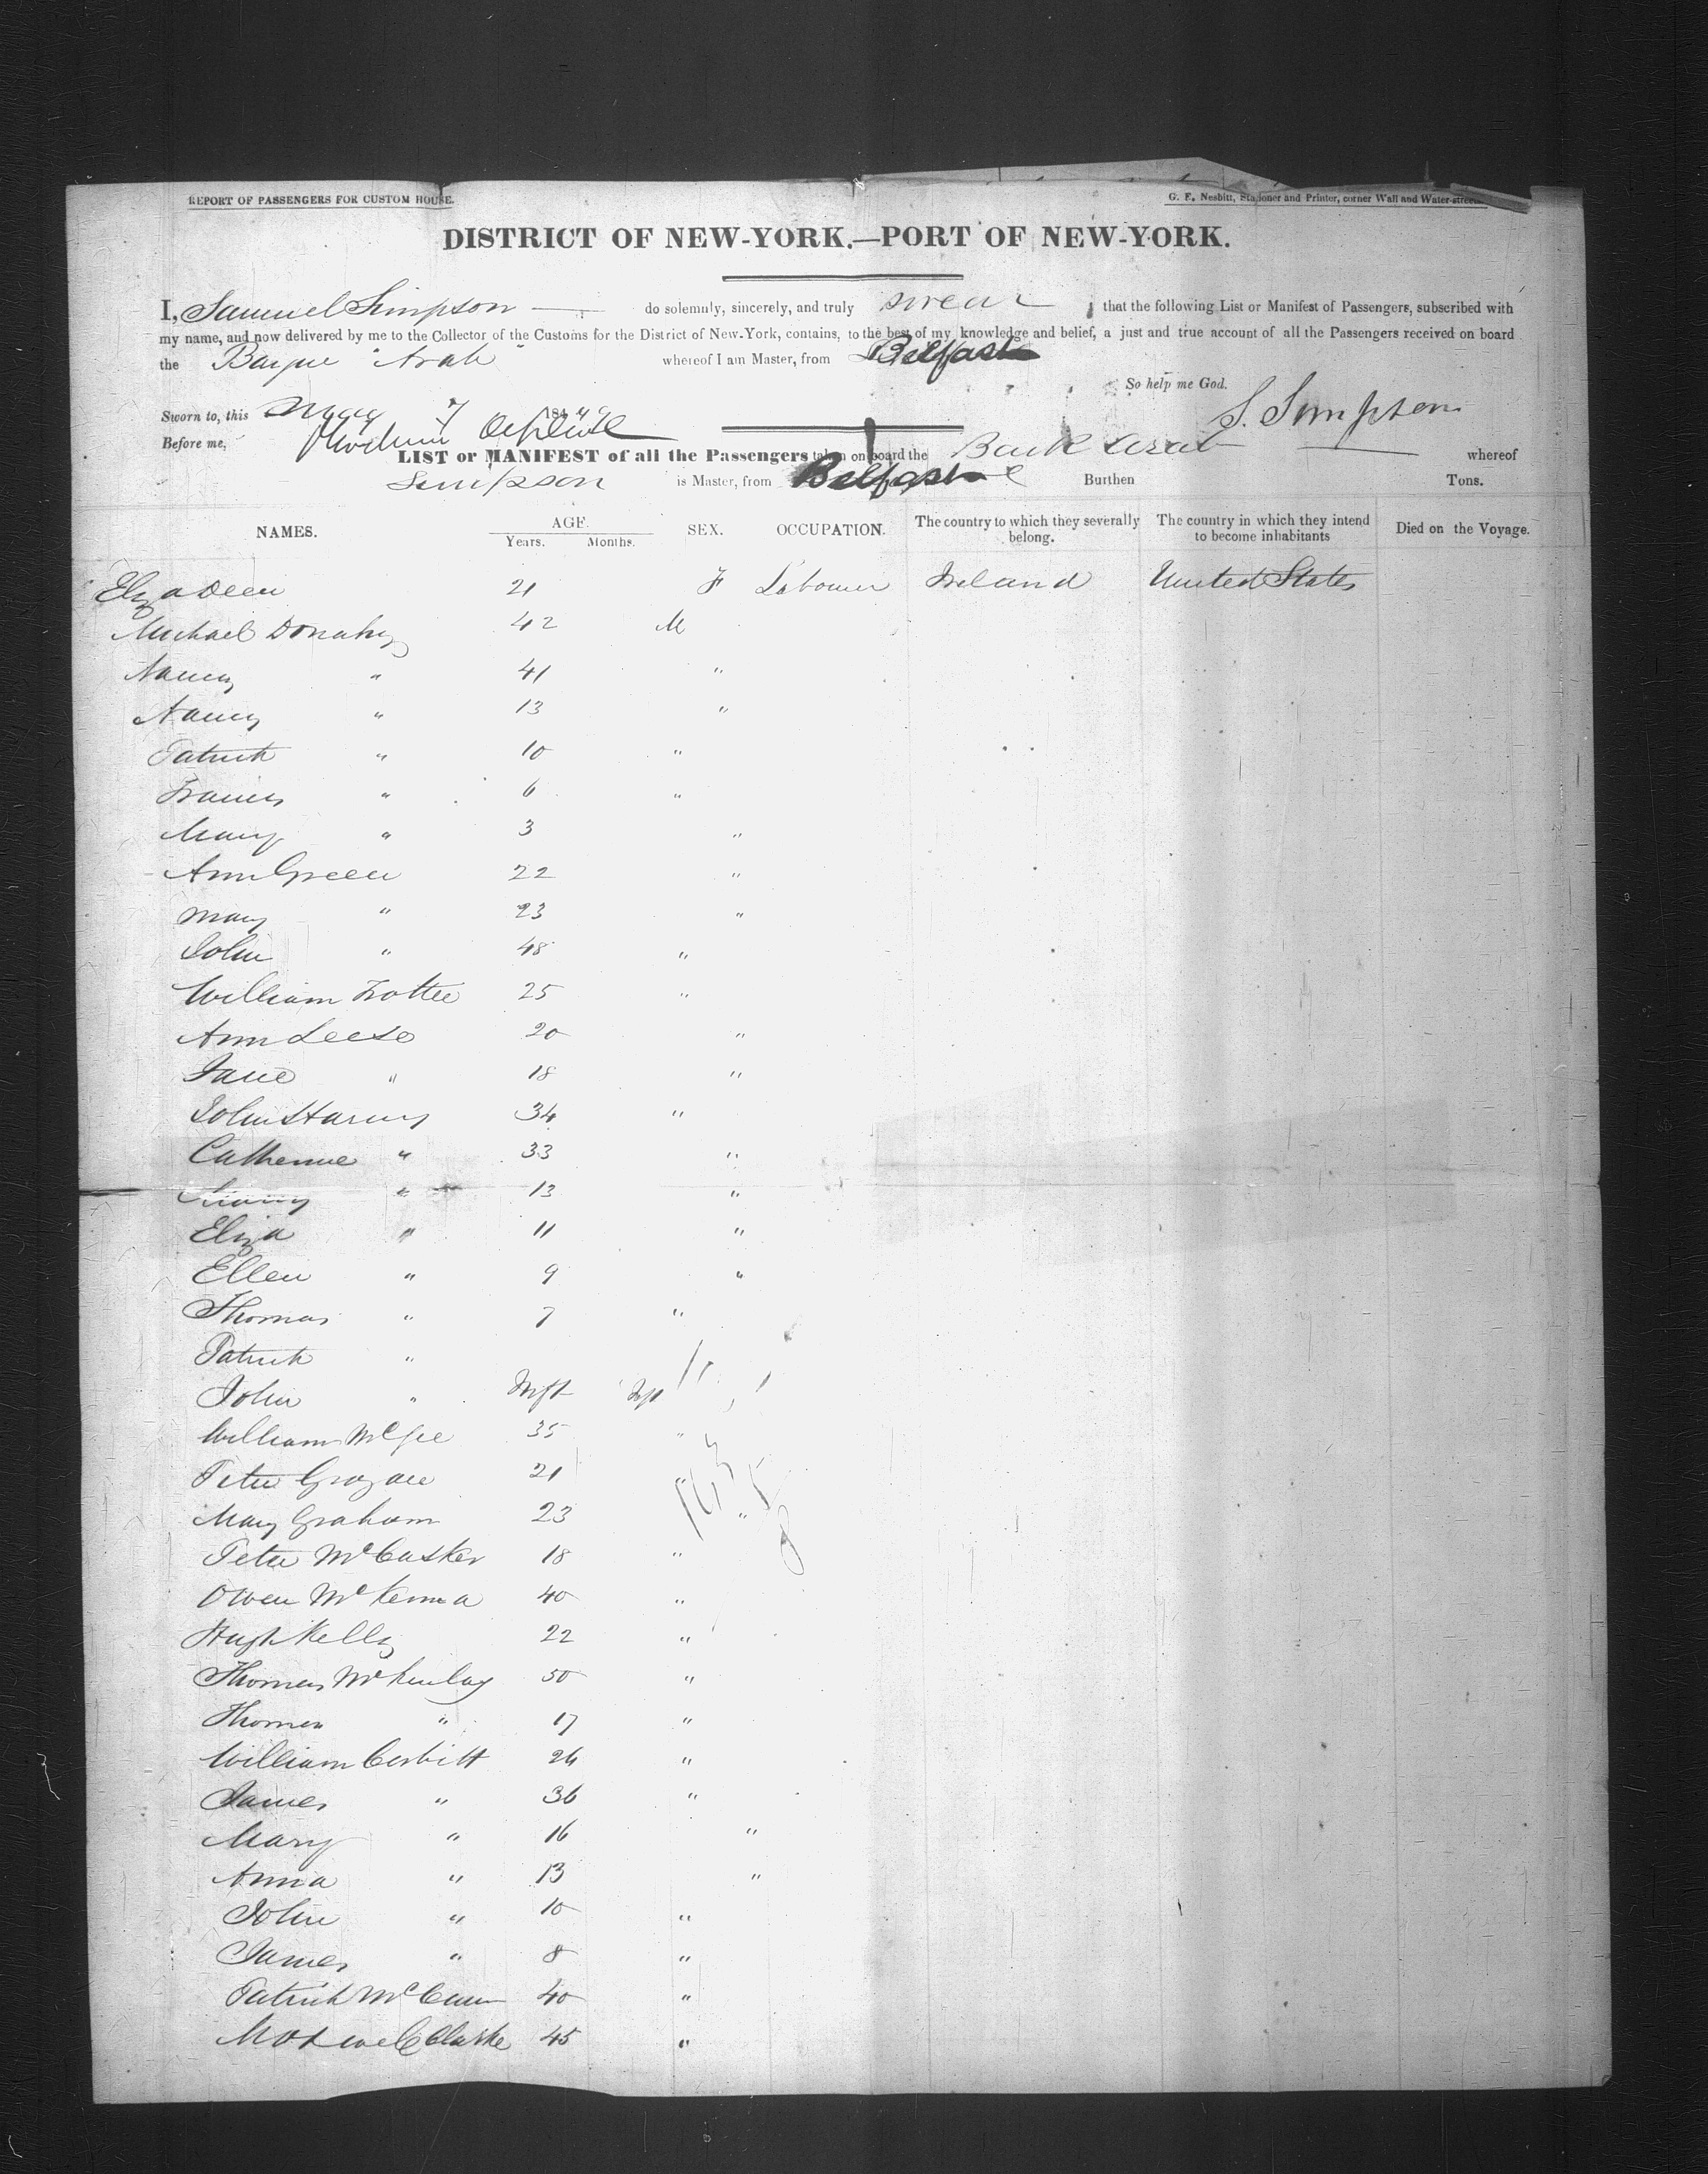 REPORT OF PASSENGERS FOR CUSTOM HOUSE.
G. F. Nesbitt, Stationer and Printer, corner Wall and Water-streets.
DISTRICT OF NEW-YORK.—PORT OF NEW-YORK.
I, Samuel Simpson do solemnly, sincerely, and truly swear that the following List or Manifest of Passengers, subscribed with
my name, and now delivered by me to the Collector of the Customs for the District of New-York, contains, to the best of my knowledge and belief, a just and true account of all the Passengers received on board
the Barque "Arab" whereof I am Master, from Belfast
So help me God.
Sworn to, this May 7 184 S. Simpson
Before me,
LIST or MANIFEST of all the Passengers taken on board the Bark Arab whereof
Simpson is Master, from Belfast Burthen Tons.
NAMES. AGE. Years. Months. SEX. OCCUPATION. The country to which they severally belong. The country in which they intend to become inhabitants Died on the Voyage.
Eliza Deen 21 F Labourer Ireland United States
Michael Donahy 42 M
Nancy " 41 "
Nancy " 13 "
Patrick " 10 "
Francis " 6 "
Mary " 3 "
Ann Green 22 "
Mary " 23 "
John " 48 "
William Trotter 25 "
Ann Leese 20 "
Jane " 18 "
John 34 "
Catherine " 33 "
" 13 "
Eliza " 11 "
Ellen " 9 "
Thomas " 7 "
Patrick "
John " Inft Inft
William McGee 35 "
Peter 21 "
Mary Graham 23 "
Peter McCasker 18 "
Owen McKenna 40 "
Hugh Kelly 22 "
Thomas McKinlay 50 "
Thomas " 17 "
William Cesbitt 26 "
James " 36 "
Mary " 16 "
Anna " 13 "
John " 10 "
James " 8 "
Patrick McCann 40 "
Maxwell Clarke 45 "